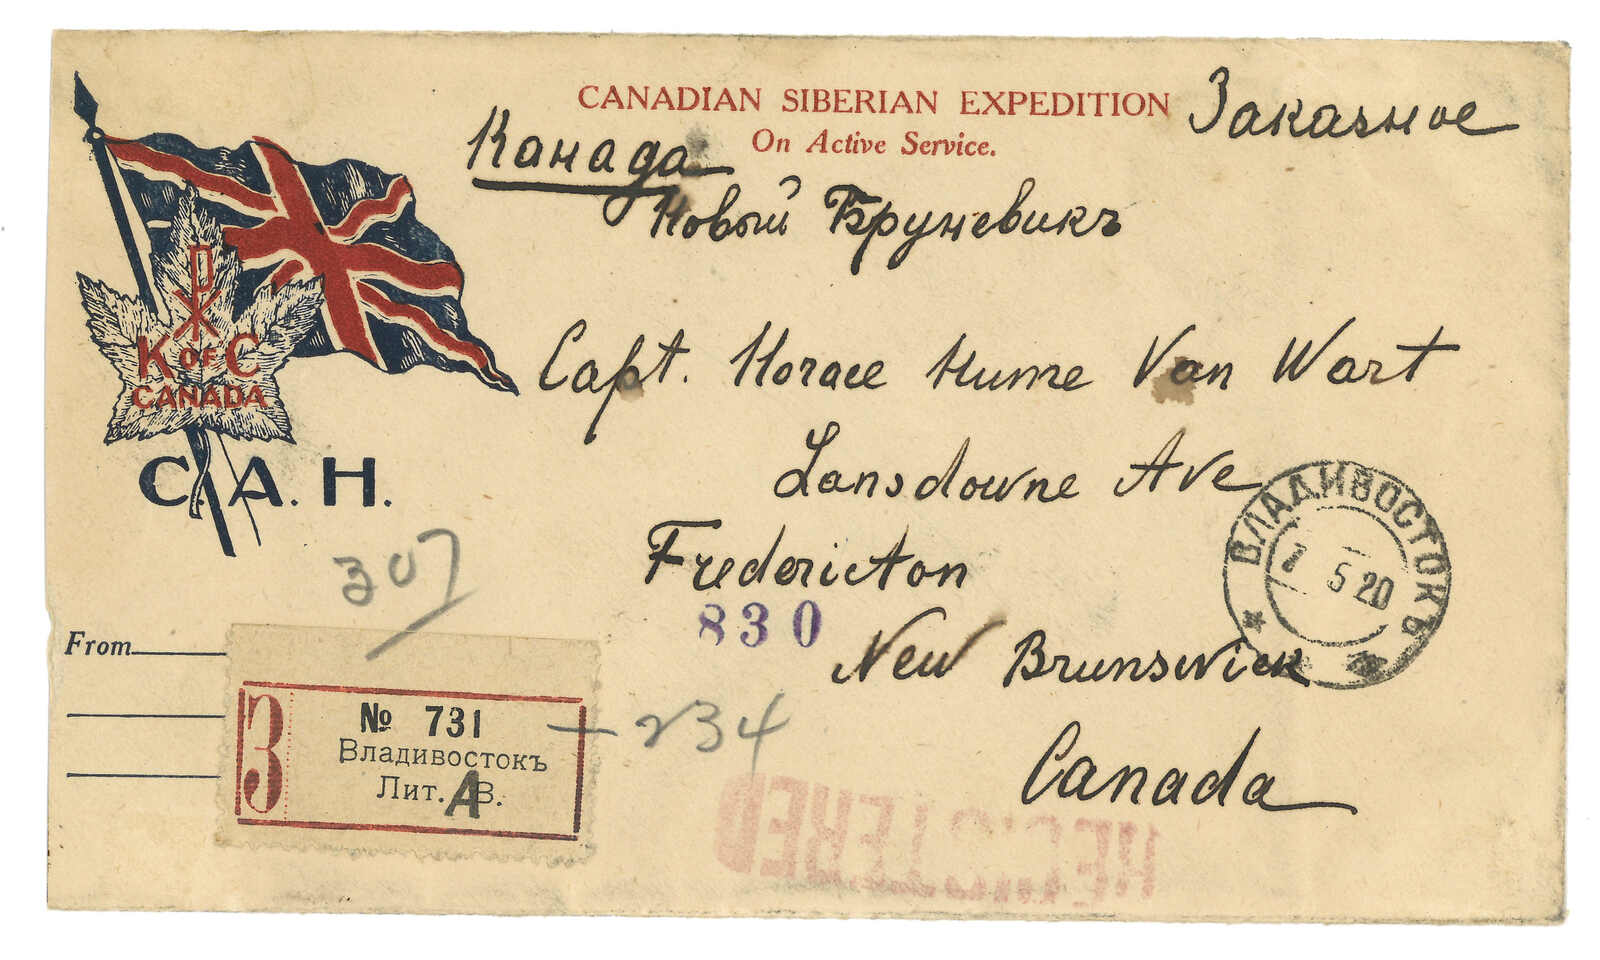 CANADIAN SIBERIAN EXPEDITION
On Active Service.
Заказное
Канада
Новый Бруневикъ
K OF C
CANADA
C. A. H.
Capt. Horace Hume Van Wart
Lansdowne Ave
Fredericton
New Brunswick
Canada
ВЛАДИВОСТОКЪ
7 5 20
307
830
From
З
№ 731
Владивостокъ
Лит. А В.
234
REGISTERED